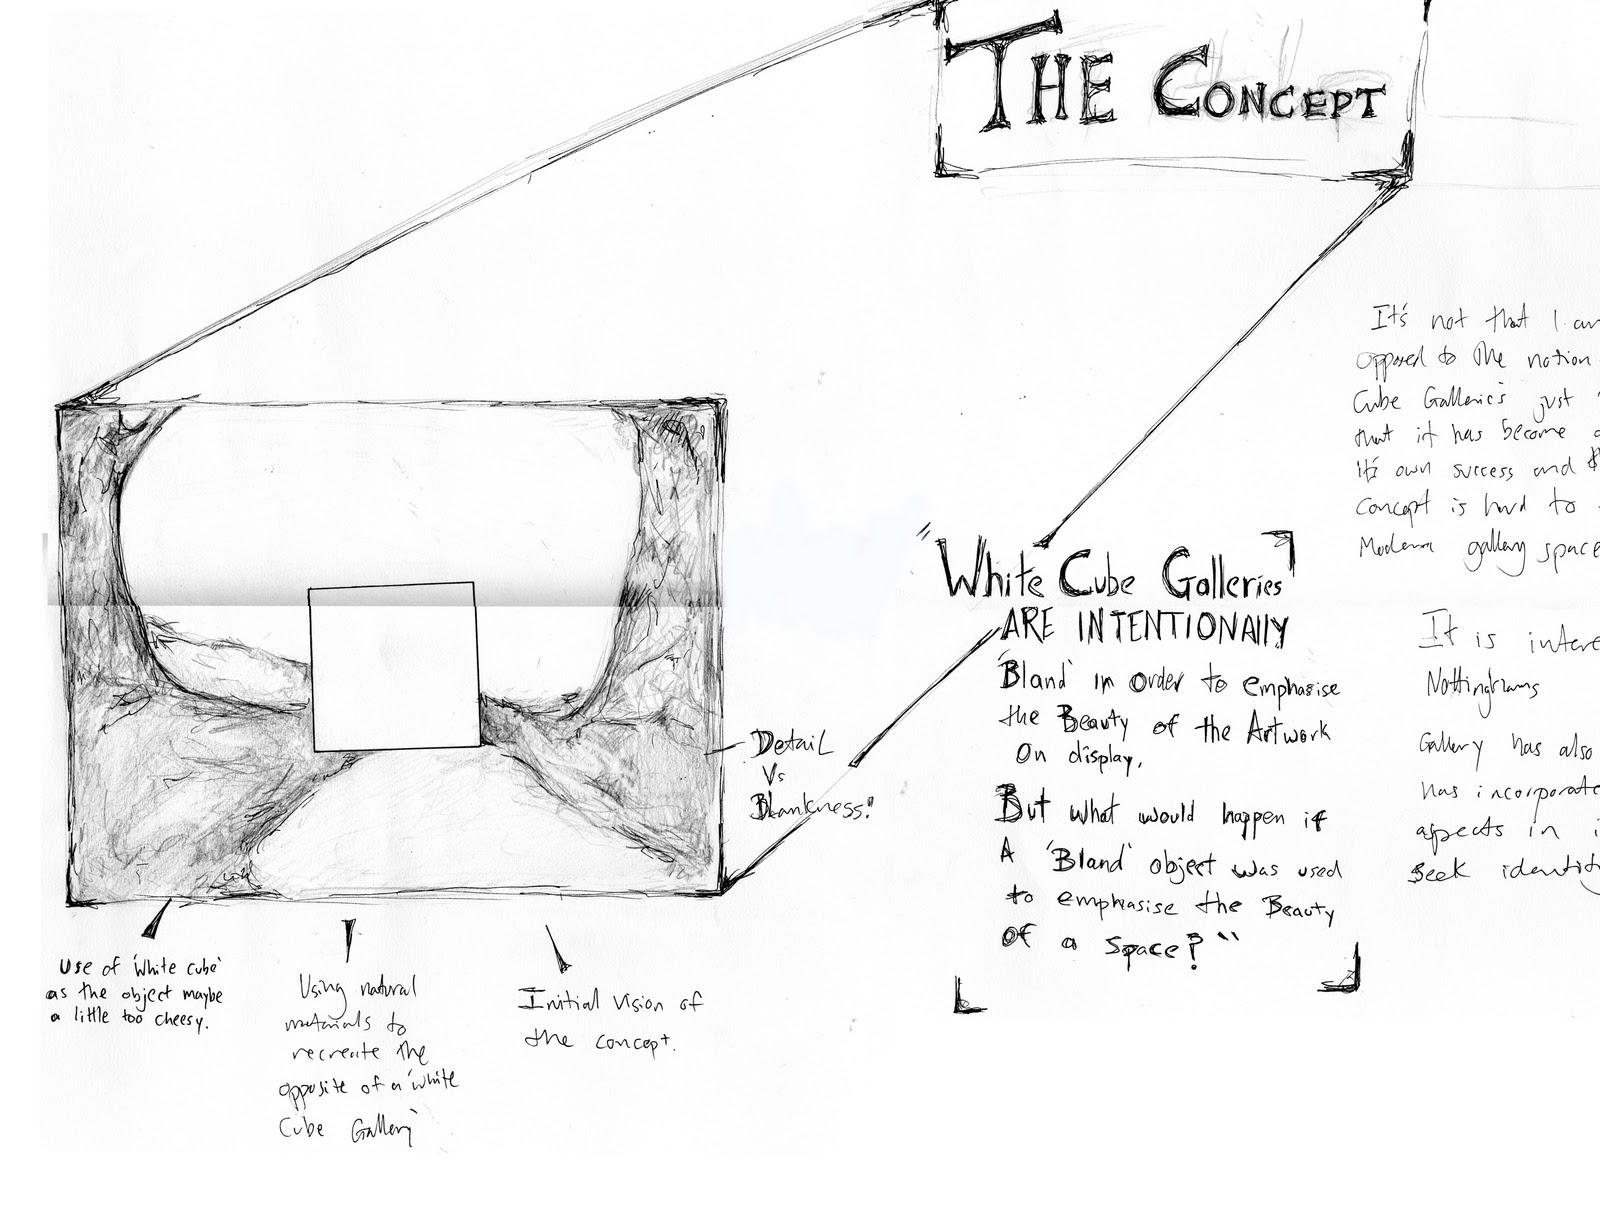 THE CONCEPT
"White Cube Galleries
ARE INTENTIONAllY
'Bland' in order to emphasise
the Beauty of the Artwork
On display,
But what would happen if
A 'Bland' object was used
to emphasise the Beauty
Of a Space?"
Detail
Vs
Blankness!
Use of 'White cube'
as the object maybe
a little too cheesy.
Using natural
materials to
recreate the
opposite of a 'white
Cube Gallery'
Initial Vision of
the concept.
It's not that I
opposed to the notion
Cube Galleries just
that it has become
It's own success and
Concept is hard to
Modern gallery space
It is
Nottinghams
Gallery has also
has
aspects in
Seek